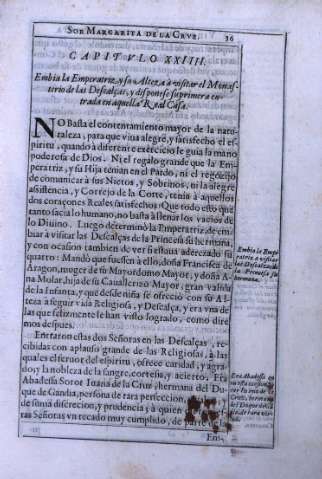 Sor Margarita de la Crvz. 36
CAPITVLO XXIIII.
Embia la Emperatriz, y su Alteza à visitar el Monas-
terio de las Descalças, y disponese su primera en-
trada en aquella Real Casa.
NO Basta el contentamiento mayor de la natu-
raleza, para que viua alegre, y satisfecho el es-
piritu, quando à diferente exercicio le guia la mano
poderosa de Dios. Ni el regalo grande que la Em-
peratriz, y su Hija tenian en el Pardo, ni el regozijo
de comunicar à sus Nietos, y Sobrinos, ni la alegre
assistencia, y Cortejo de la Corte, tenia à aquellos
dos coraçones Reales satisfechos: Que todo esto que
tanto sacia lo humano, no basta à llenar los vacios de
lo Diuino. Luego determinò la Emperatriz de em-
biar à visitar las Descalças de la Princesa su hermana,
y con ocasion tambien de ver si estaua adereçado su
quarto: Mandò que fuessen à ello, doña Francisca de
Aragon, muger de su Mayordomo Mayor, y doña A-
na Molar, hija de su Cauallerizo Mayor, gran valida
de la Infanta, y que desde niña se ofreciò con su Al-
teza à seguir vida Religiosa, y Descalça, y era vna de
las que felizmente le han visto logrado, como dire-
mos despues.
Entraron estas dos Señoras en las Descalças, re-
cibidas con aplauso grande de las Religiosas, à la
quales el feruor del espiritu, ofrece caridad, y agra-
do, y la nobleza de la sangre, cortesia, y acierto. Era
Abadessa Soror Iuana de la Cruz, hermana del Du-
que de Gandia, persona de rara perfeccion,
de suma discrecion, y prudencia; à quien
ras Señoras vn recado muy cumplido, de parte de la
Em-
Embia la Empe-
ratriz a visitar
las Descalças de
la Princesa su
hermana.
Era Abadessa
Cruz, hermana
del Duque de